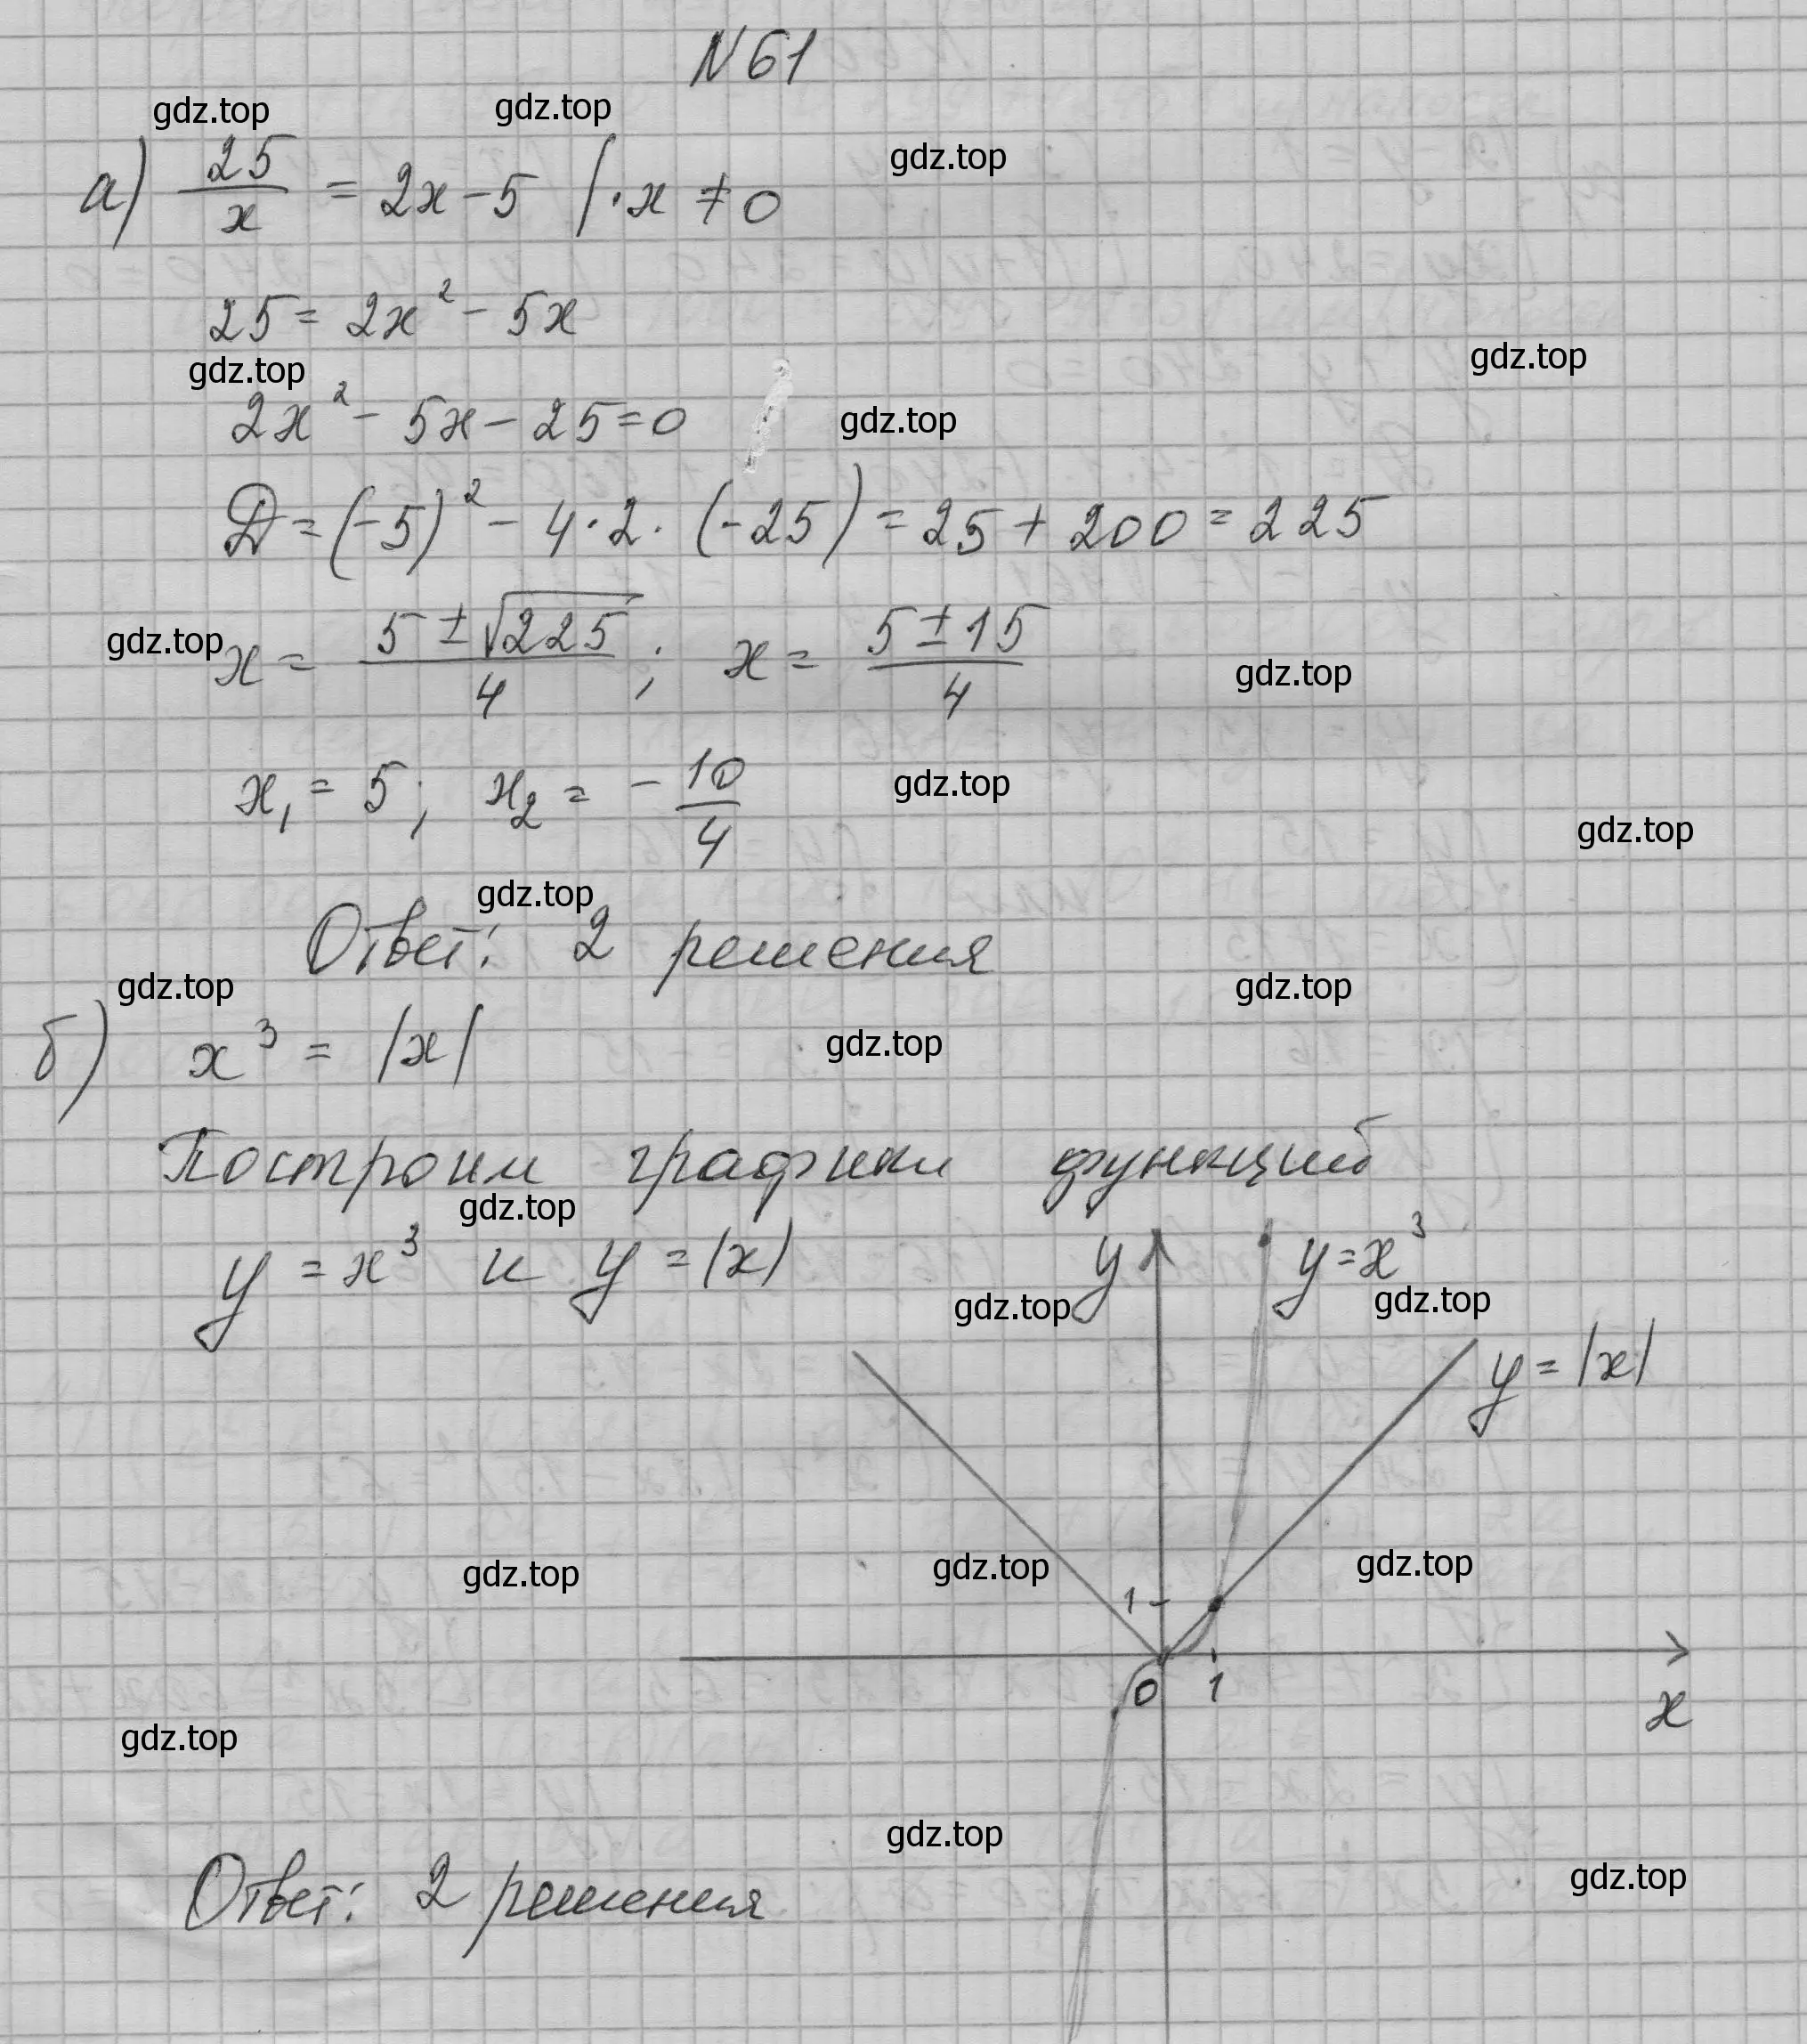 N 61
gdz.top gdz.top gdz.top
а) 25/x = 2x - 5 | · x ≠ 0
25 = 2x² - 5x
gdz.top gdz.top
2x² - 5x - 25 = 0 gdz.top
D = (-5)² - 4 · 2 · (-25) = 25 + 200 = 225
gdz.top x = (5 ± √225)/4 ; x = (5 ± 15)/4 gdz.top
x₁ = 5; x₂ = - 10/4 gdz.top gdz.top
gdz.top
Ответ: 2 решения
gdz.top gdz.top
б) x³ = |x| gdz.top
Построим графики функций
gdz.top
y = x³ и y = |x|
y y = x³
gdz.top gdz.top
y = |x|
gdz.top gdz.top gdz.top
1
0 1 x
gdz.top
gdz.top gdz.top
Ответ: 2 решения